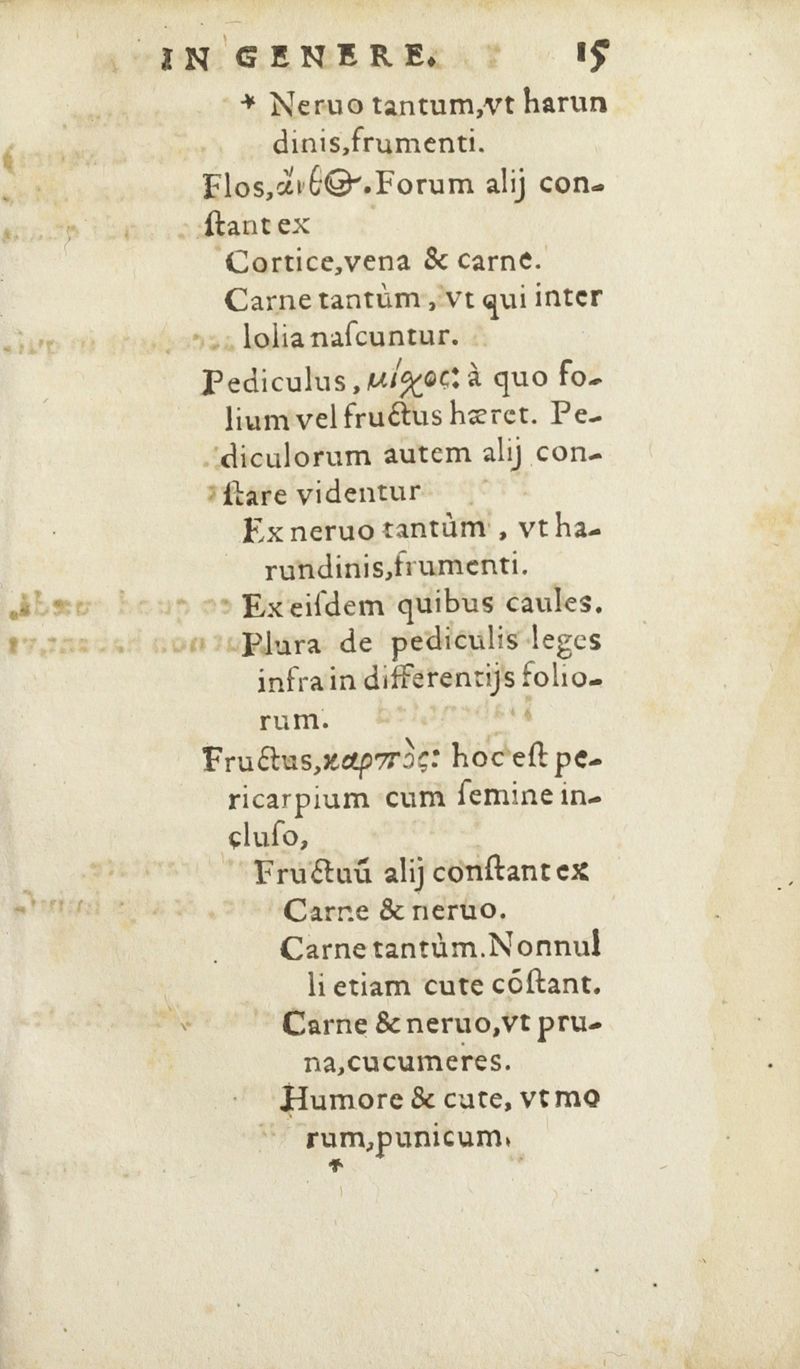 IN GENERE. 15
* Neruo tantum,vt harun
dinis,frumenti.
Flos,ἄνθος.Forum alij con-
ſtant ex
Cortice,vena & carne.
Carne tantùm , vt qui inter
lolia naſcuntur.
Pediculus , μίχος: à quo fo-
lium vel fructus hæret. Pe-
diculorum autem alij con-
ſtare videntur
Ex neruo tantùm , vt ha-
rundinis,frumenti.
Ex eiſdem quibus caules.
Plura de pediculis leges
infra in differentijs folio-
rum.
Fructus,καρπὸς: hoc eſt pe-
ricarpium cum ſemine in-
cluſo,
Fructuũ alij conſtant ex
Carne & neruo.
Carne tantùm.Nonnul
li etiam cute cõſtant.
Carne & neruo,vt pru-
na,cucumeres.
Humore & cute, vt mo
rum,punicum.
*